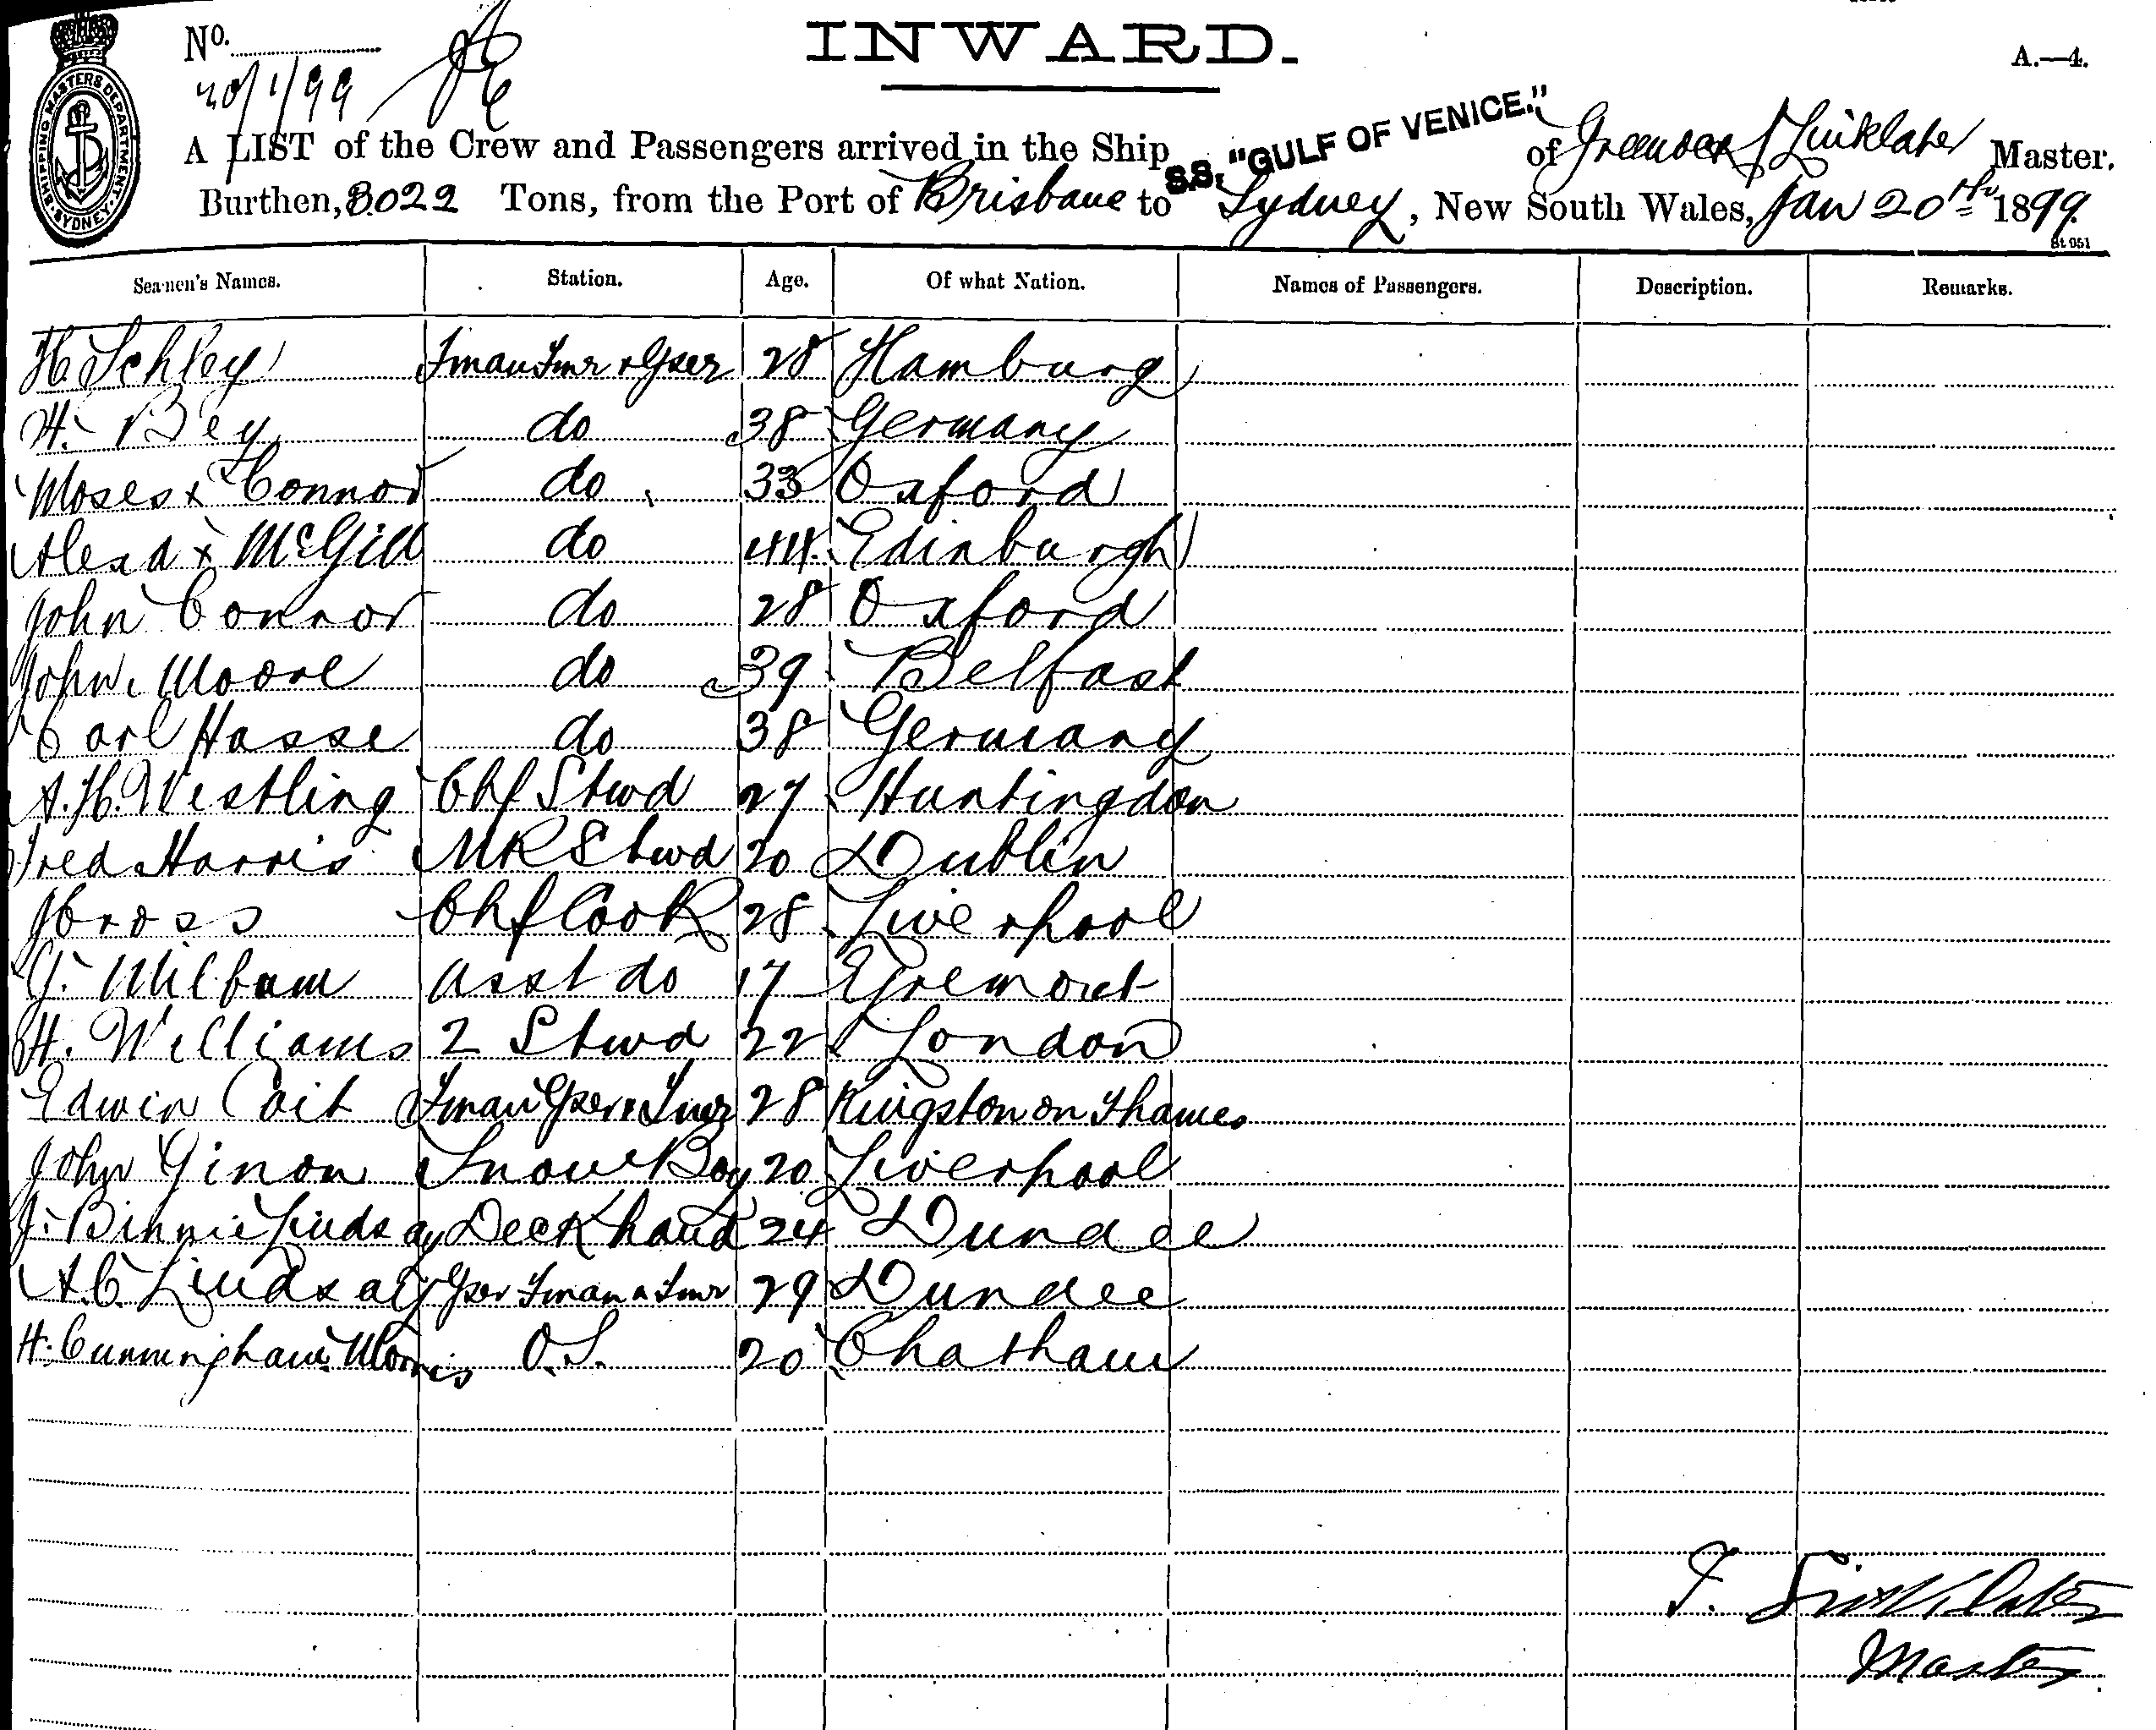 No.
20/1/99
INWARD.
A.—4.
SHIPPING MASTERS DEPARTMENT. SYDNEY.
A LIST of the Crew and Passengers arrived in the Ship S.S. "GULF OF VENICE." of Greenock Linklater Master.
Burthen, 3.022 Tons, from the Port of Brisbane to Sydney, New South Wales, Jan 20th 1899.
St. 051
Seamen's Names. Station. Age. Of what Nation. Names of Passengers. Description. Remarks.
H. Schley Fman Tmr & Gser 28 Hamburg
H. Bey do 38 Germany
Moses x Connor do 33 Oxford
Alexd x McGill do 44 Edinburgh
John Connor do 28 Oxford
John Moore do 39 Belfast
Carl Hasse do 38 Germany
A.H. Westling Chf Stwd 27 Huntingdon
Fred Harris MR Stwd 20 Dublin
J Cross Chf Cook 28 Liverpool
Milbum Asst do 17 Egremont
H. Williams 2 Stwd 22 London
Edwin Cait Fman Gser & Tmr 28 Kingston on Thames
John Ginon Boy 20 Liverpool
J. Binnie Lindsay Deck hand 24 Dundee
A.C. Lindsay Gser Fman & Tmr 29 Dundee
H. Cunningham Morris O.S. 20 Chatham
T. Linklater
Master